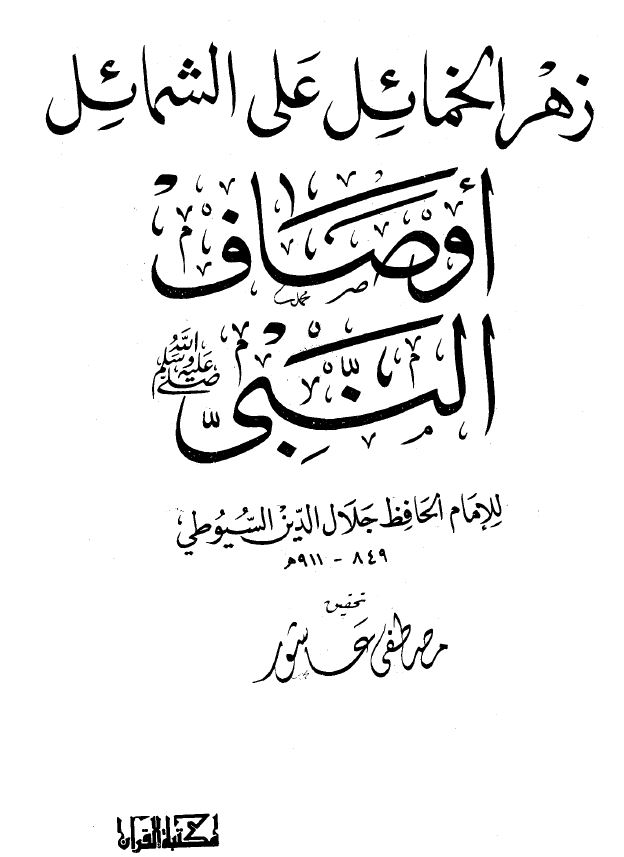 زهر الخمائل على الشمائل
أوصاف
النبي ﷺ
للإمام الحافظ جلال الدين السيوطي
٨٤٩ - ٩١١هـ
تحقيق
مصطفى عاشور
مكتبة القرآن